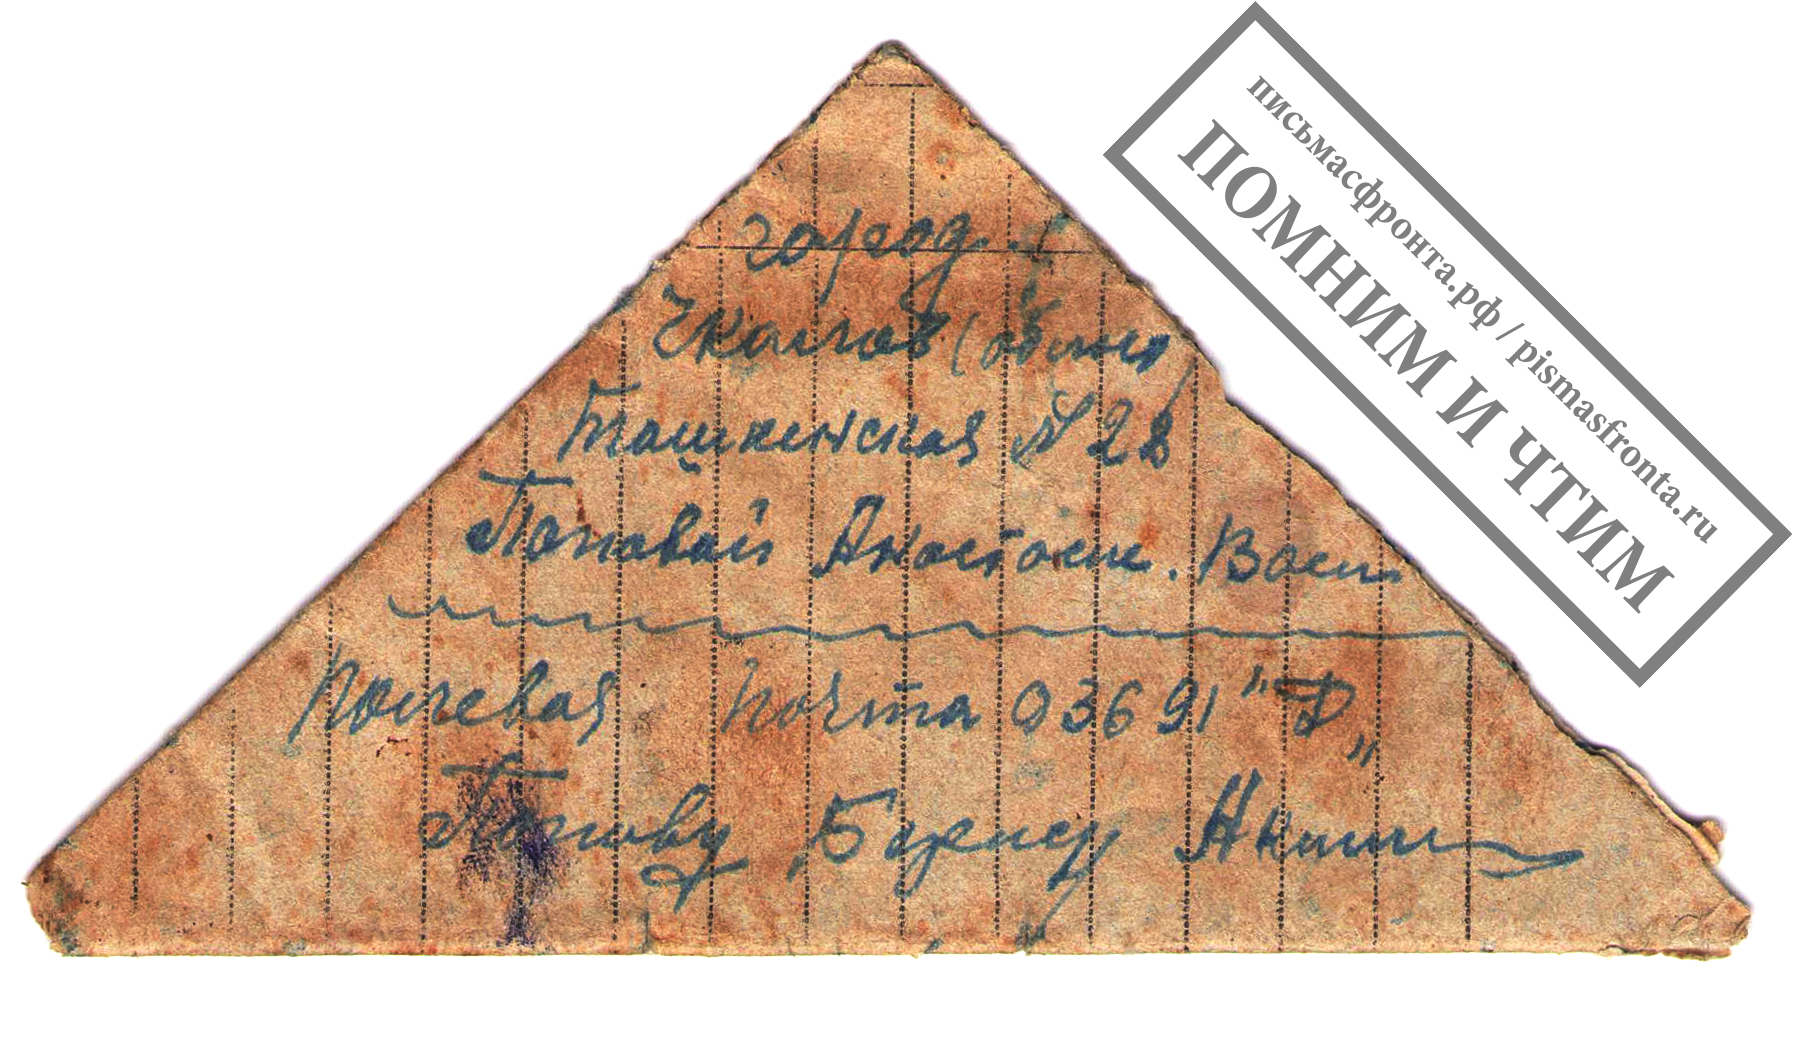 город
Чкалов (облас)
Ташкенская № 28
Поповай Анастасие. Васи
Полевая почта 03691 "Д"
Попову Борису
письмасфронта.рф / pismasfronta.ru
ПОМНИМ И ЧТИМ